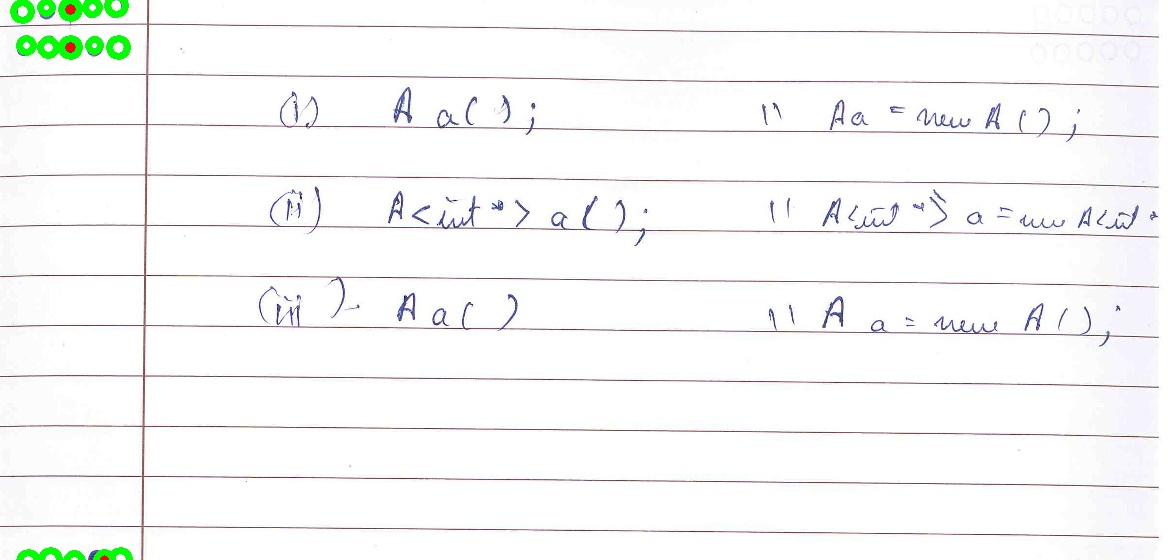 (i) A a( ); // A a = new A ( );
(ii) A<int *> a( ); // A<int *> a = new A<int *
(iii) - A a( ) // A a = new A( );